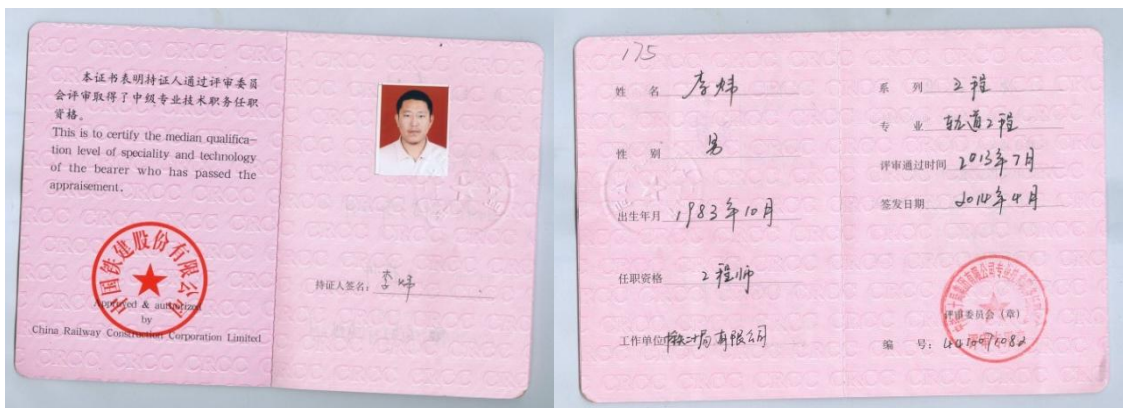 本证书表明持证人通过评审委员
会评审取得了中级专业技术职务任职
资格。
This is to certify the median qualifica-
tion level of speciality and technology
of the bearer who has passed the
appraisement.
中国铁建股份有限公司
Approved & authorized
by
China Railway Construction Corporation Limited
持证人签名：李炜
175
姓 名 李炜
性 别 男
出生年月 1983年10月
任职资格 工程师
工作单位
系 列 工程
专 业 轨道工程
评审通过时间 2013年7月
签发日期 2014年4月
评审委员会（章）
编 号：